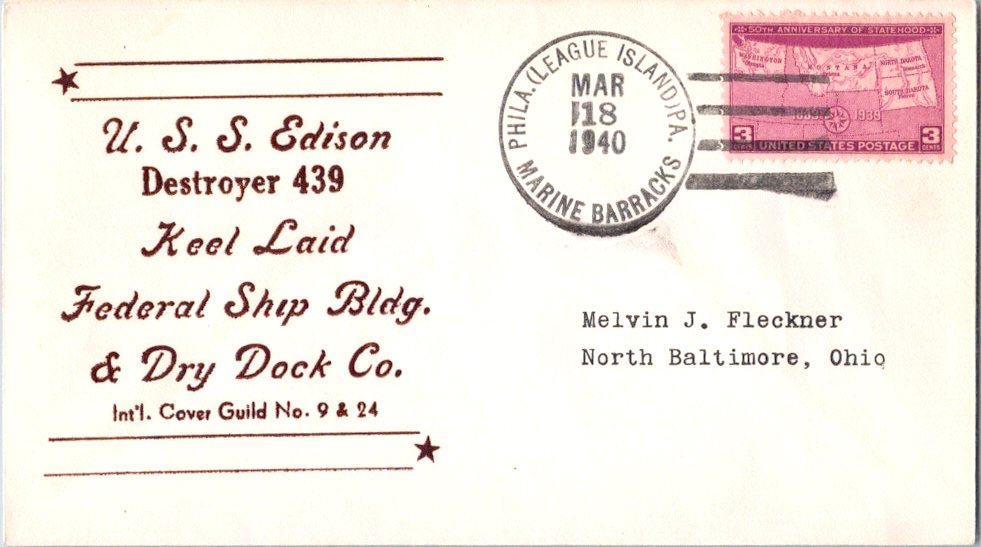 U. S. S. Edison
Destroyer 439
Keel Laid
Federal Ship Bldg.
& Dry Dock Co.
Int'l. Cover Guild No. 9 & 24
PHILA.(LEAGUE ISLAND)PA.
MAR
18
1940
MARINE BARRACKS
50TH ANNIVERSARY OF STATEHOOD
WASHINGTON
Olympia
MONTANA
Helena
NORTH DAKOTA
Bismarck
SOUTH DAKOTA
Pierre
1889 1939
3 CENTS UNITED STATES POSTAGE 3 CENTS
Melvin J. Fleckner
North Baltimore, Ohio